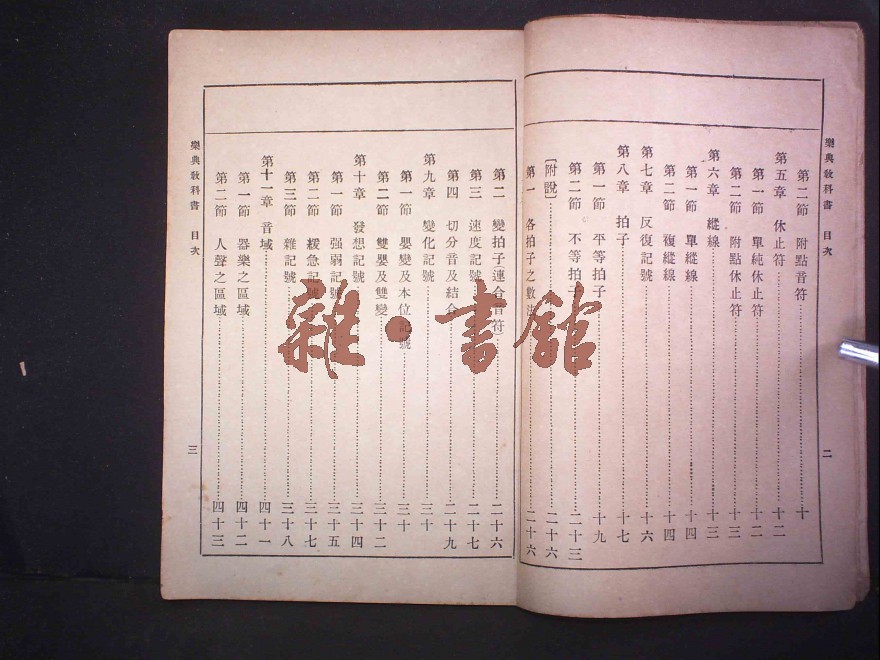 樂典教科書 目次 二
第二節 附點音符 十
第五章 休止符 十二
第一節 單純休止符 十二
第二節 附點休止符 十三
第六章 縱線 十三
第一節 單縱線 十四
第二節 複縱線 十四
第七章 反復記號 十六
第八章 拍子 十七
第一節 平等拍子 十九
第二節 不等拍子 二十三
〔附說〕 二十六
第一 各拍子之數法 二十六
第二 變拍子連合音符 二十六
第三 速度記號 二十七
第四 切分音及結合 二十九
第九章 變化記號 三十
第一節 嬰變及本位記號 三十
第二節 雙嬰及雙變 三十二
第十章 發想記號 三十四
第一節 强弱記號 三十五
第二節 緩急記號 三十七
第三節 雜記號 三十八
第十一章 音域 四十一
第一節 器樂之區域 四十二
第二節 人聲之區域 四十三
樂典教科書 目次 三
雜·書館